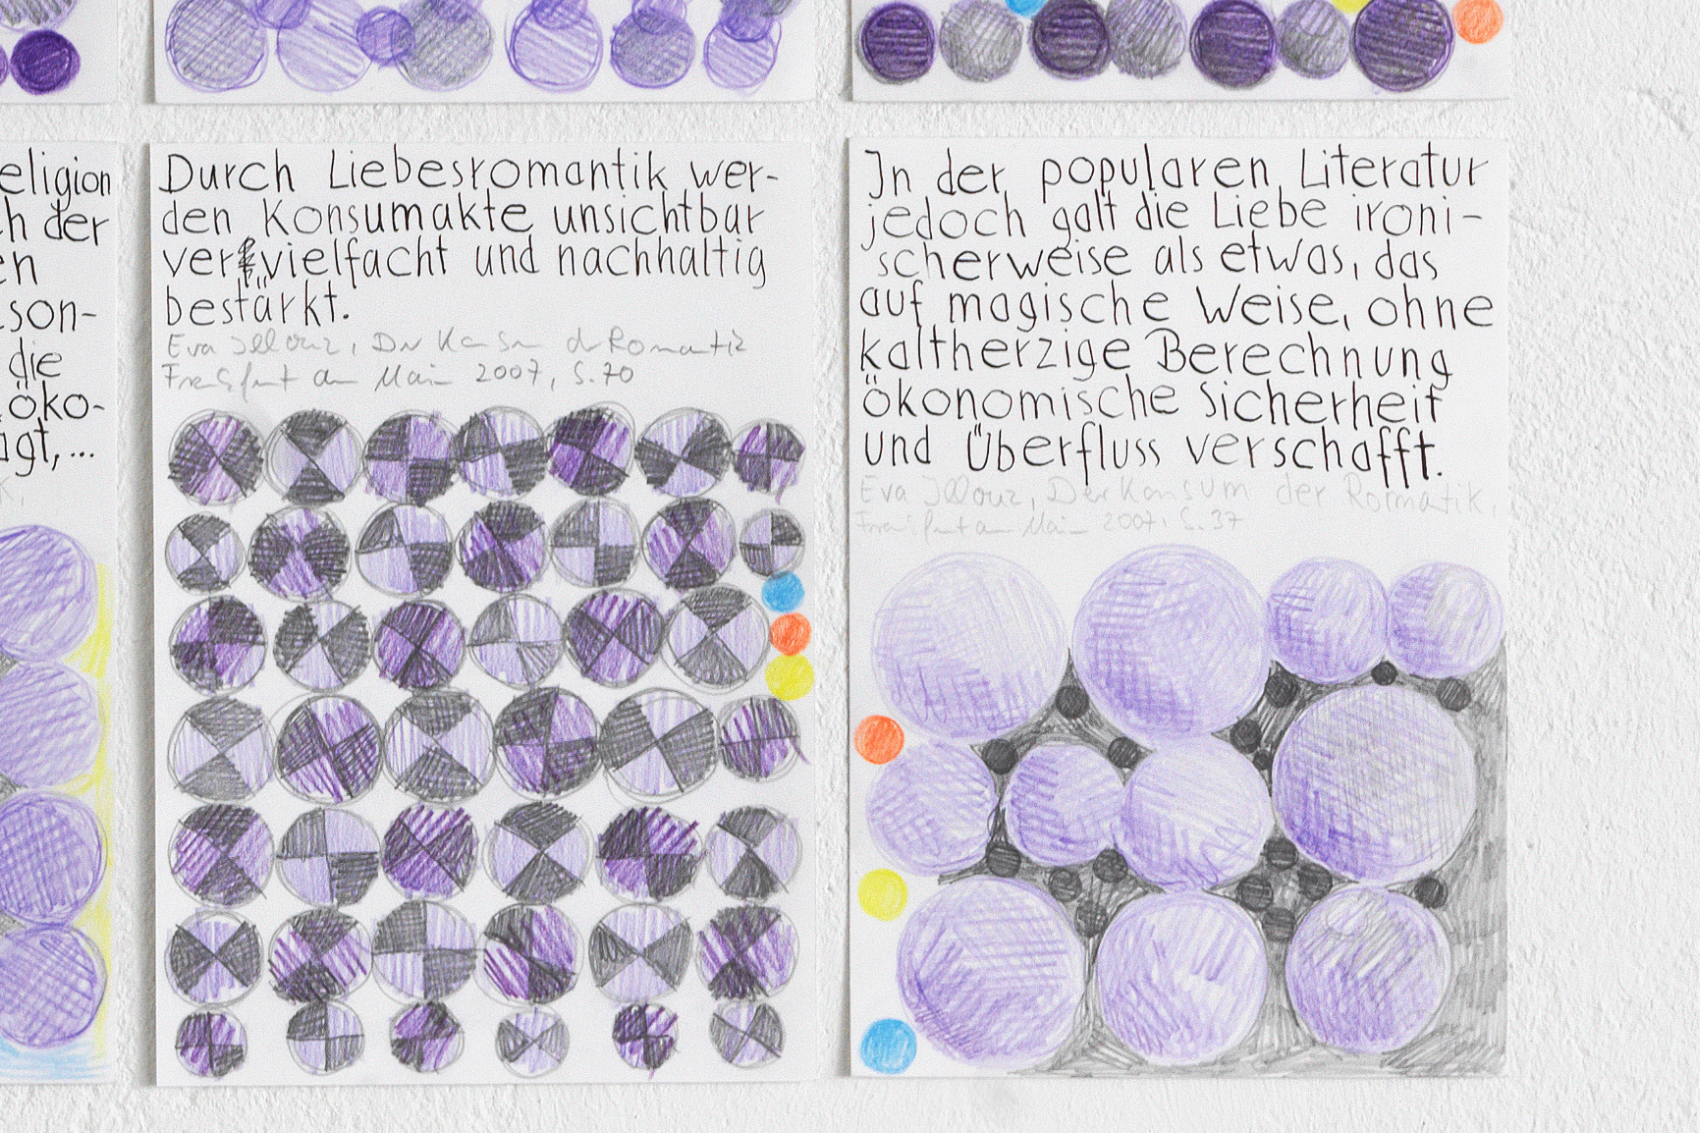 eligion
h der
en
son-
die
öko-
agt,...
Durch Liebesromantik wer-
den Konsumakte unsichtbar
vervielfacht und nachhaltig
bestärkt.
Eva Illouz, Der Konsum der Romantik
Frankfurt am Main 2007, S. 70
In der popularen Literatur
jedoch galt die Liebe ironi-
scherweise als etwas, das
auf magische Weise, ohne
kaltherzige Berechnung
ökonomische Sicherheit
und Überfluss verschafft.
Eva Illouz, Der Konsum der Romantik,
Frankfurt am Main 2007, S. 37